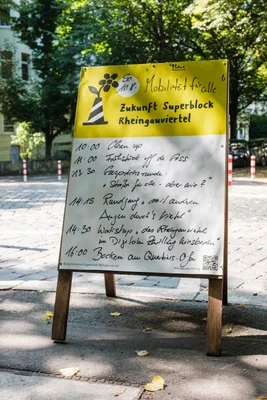 So
10.8.
Mobilität für alle
Zukunft Superblock
Rheingauviertel
10:00 Open up
11:00 Frühstück uff de Gass
13:30 Gesprächsrunde
"Straße für alle - aber wie?"
14:15 Rundgang "mit andren
Augen durch's Viertel"
14:30 Workshop "das Rheingauviertel
im Digitalen Zwilling
16:00 Backen am Quartiers-Ofen